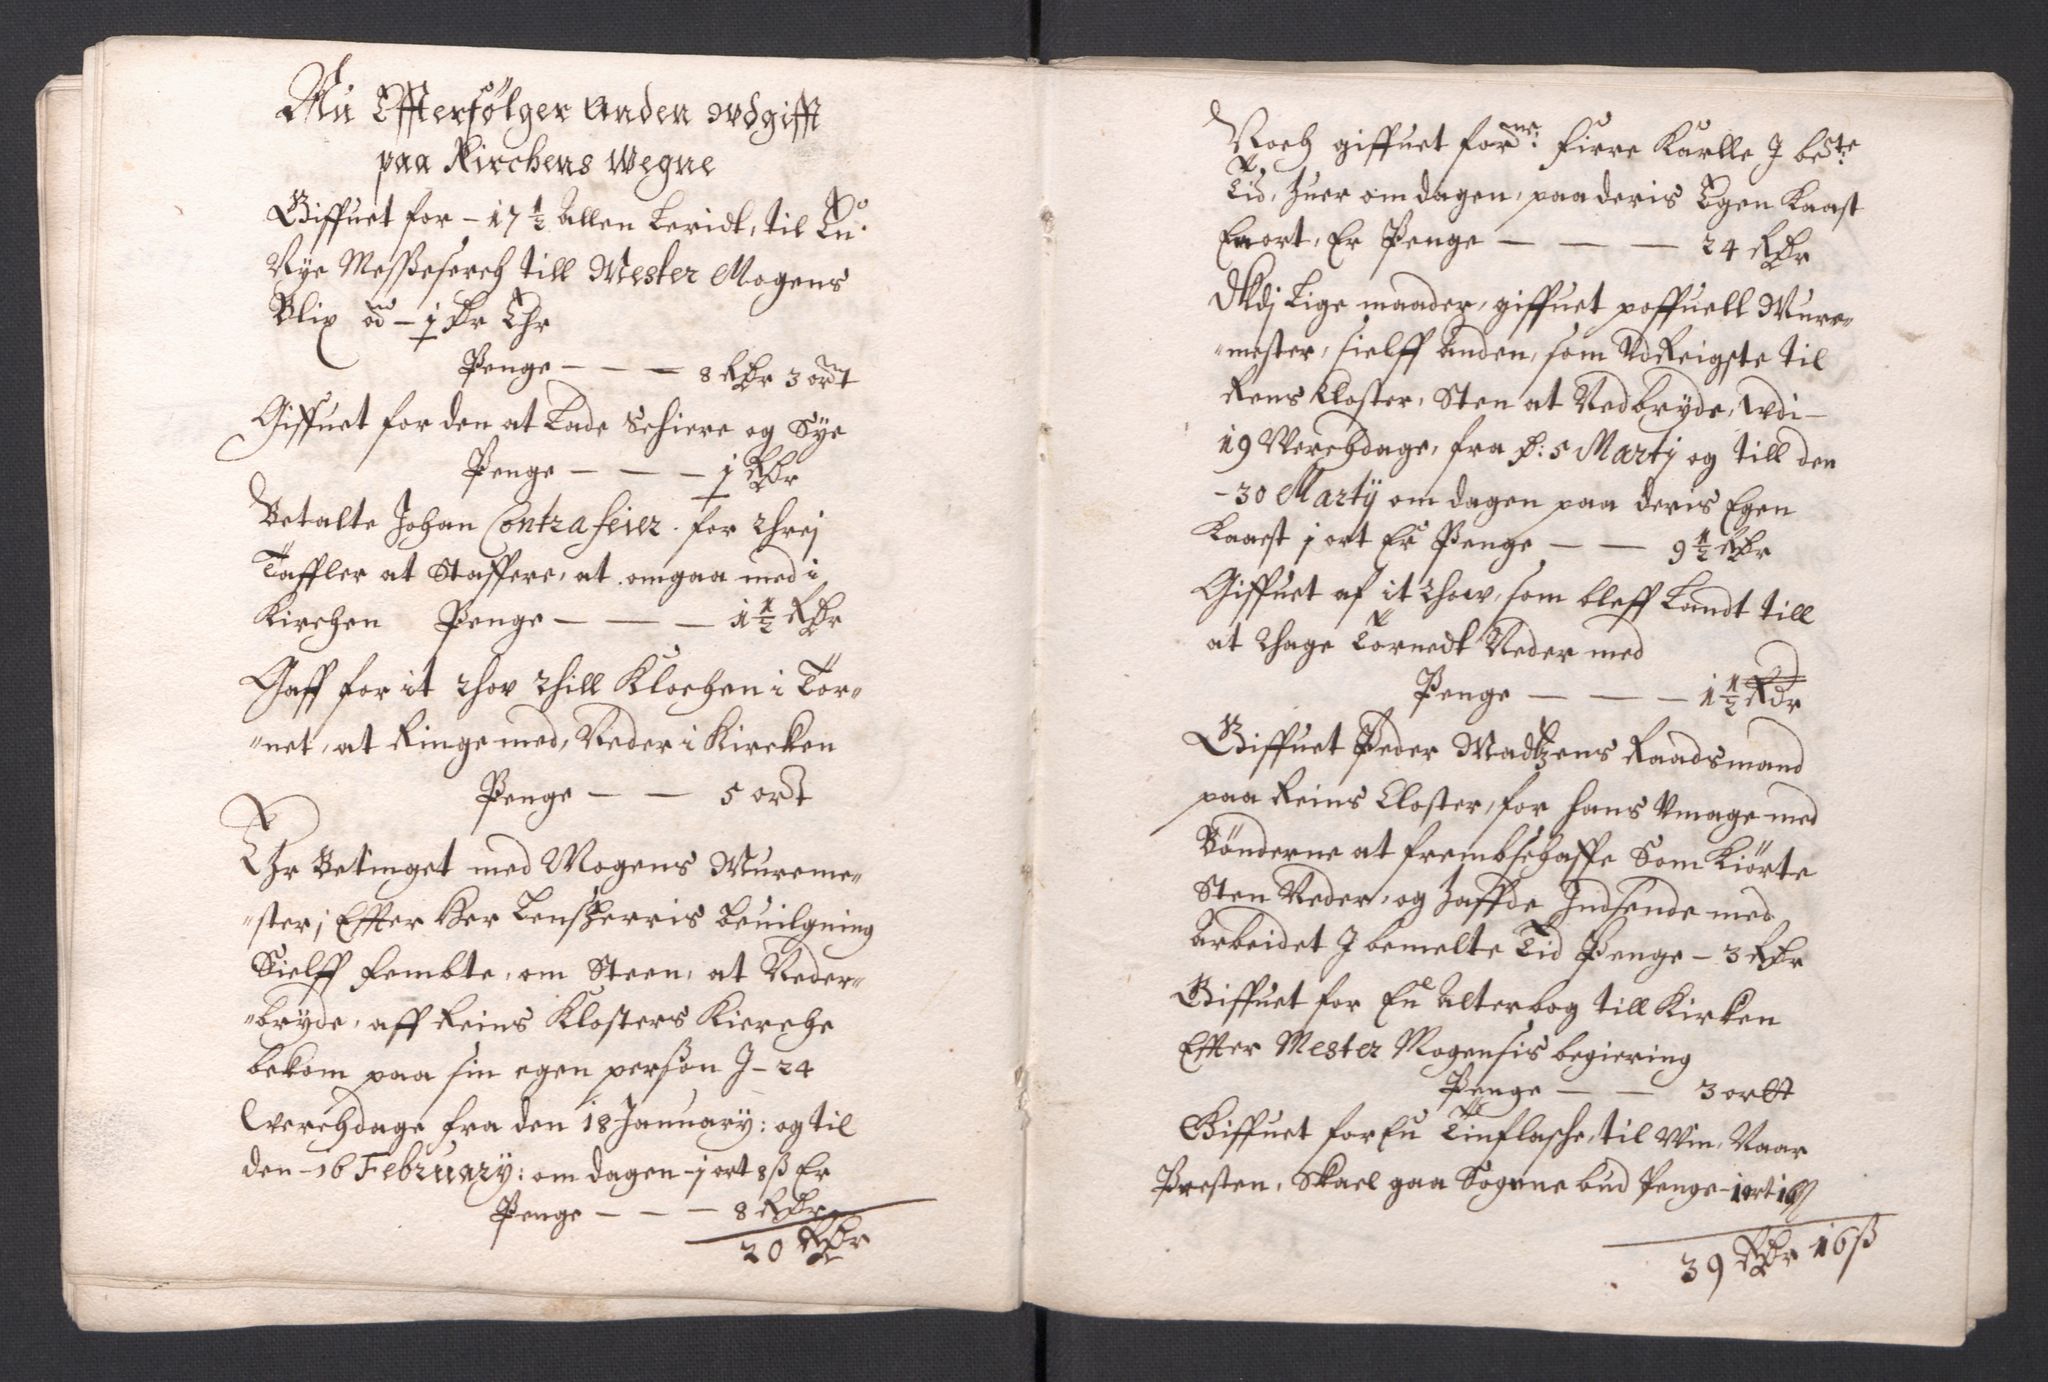 Nu Effterfölger Anden Wdgifft
paa Kirchens Wegne
Giffuet for – 17 1/2 Allen Leridt, til En
Nÿe Messesserch till Mester Mogens
Blix – 1 Ort
Penge – – – 8 Rdr 3 ort
Giffuet for den at Lade Schiere og Sÿe
Penge – – – 1 Rdr
Betalte Johan Contrafeier for threj
Taffler at Staffere, at omgaa med i
Kirchen Penge – – – 1 1/2 Rdr
Gaff for it thov thill Klochen i Tor„
„net, at Ringe med, Neder i Kircken
Penge – – 5 ort
Er Betinget med Mogens Mureme„
„ster, Effter Her Lensherris beuilgning
Sielff fembte, om Steen, at Neder„
„brÿde, aff Reins Klosters Kierche
bekom paa sin egen person J – 24
Werchdage fra den 18 January: og til
den – 16 Februarÿ: om dagen – j ort 8 ß Er
Penge – – – 8 Rdr
20 Rdr
Noch giffuet forne: firre Karlle J bete
Tid, huer om dagen, paa deris Egen Kaast
En ort, Er Penge – – – 24 Rdr
Wdj Lige maader, giffuet poffuell Mure„
„mester, sielff anden, som Wdreigste til
Rens Kloster, Sten at Nedbrÿde, wdi –
19 Werchdage, fra d: 5 Martj og till den
– 30 Martÿ om dagen paa deris Egen
Kaast j ort Er Penge – – 9 1/2 Rdr
Giffuet af it thow, som bleff Landt till
at thage Tornedt Neder med
Penge – – – 1 1/2 Rdr
Giffuet Peder Madtzens Raadsmand
paa Reins Closter, for hans Vmage med
Bönderne at frembschaffe Som Kiörte
Sten Neder, og haffde Indsende med
Arbeidet J bemelte Tid Penge – 3 Rdr
Giffuet for En Alterbog till Kirken
Effter Mester Mogensis begiering
Penge – – 3 ortt
Giffuet for En Tinflasche, til Win, Naar
Presten, Skael gaa Sogne bud Penge – 1 ort 16 ß
39 Rdr 16 ß